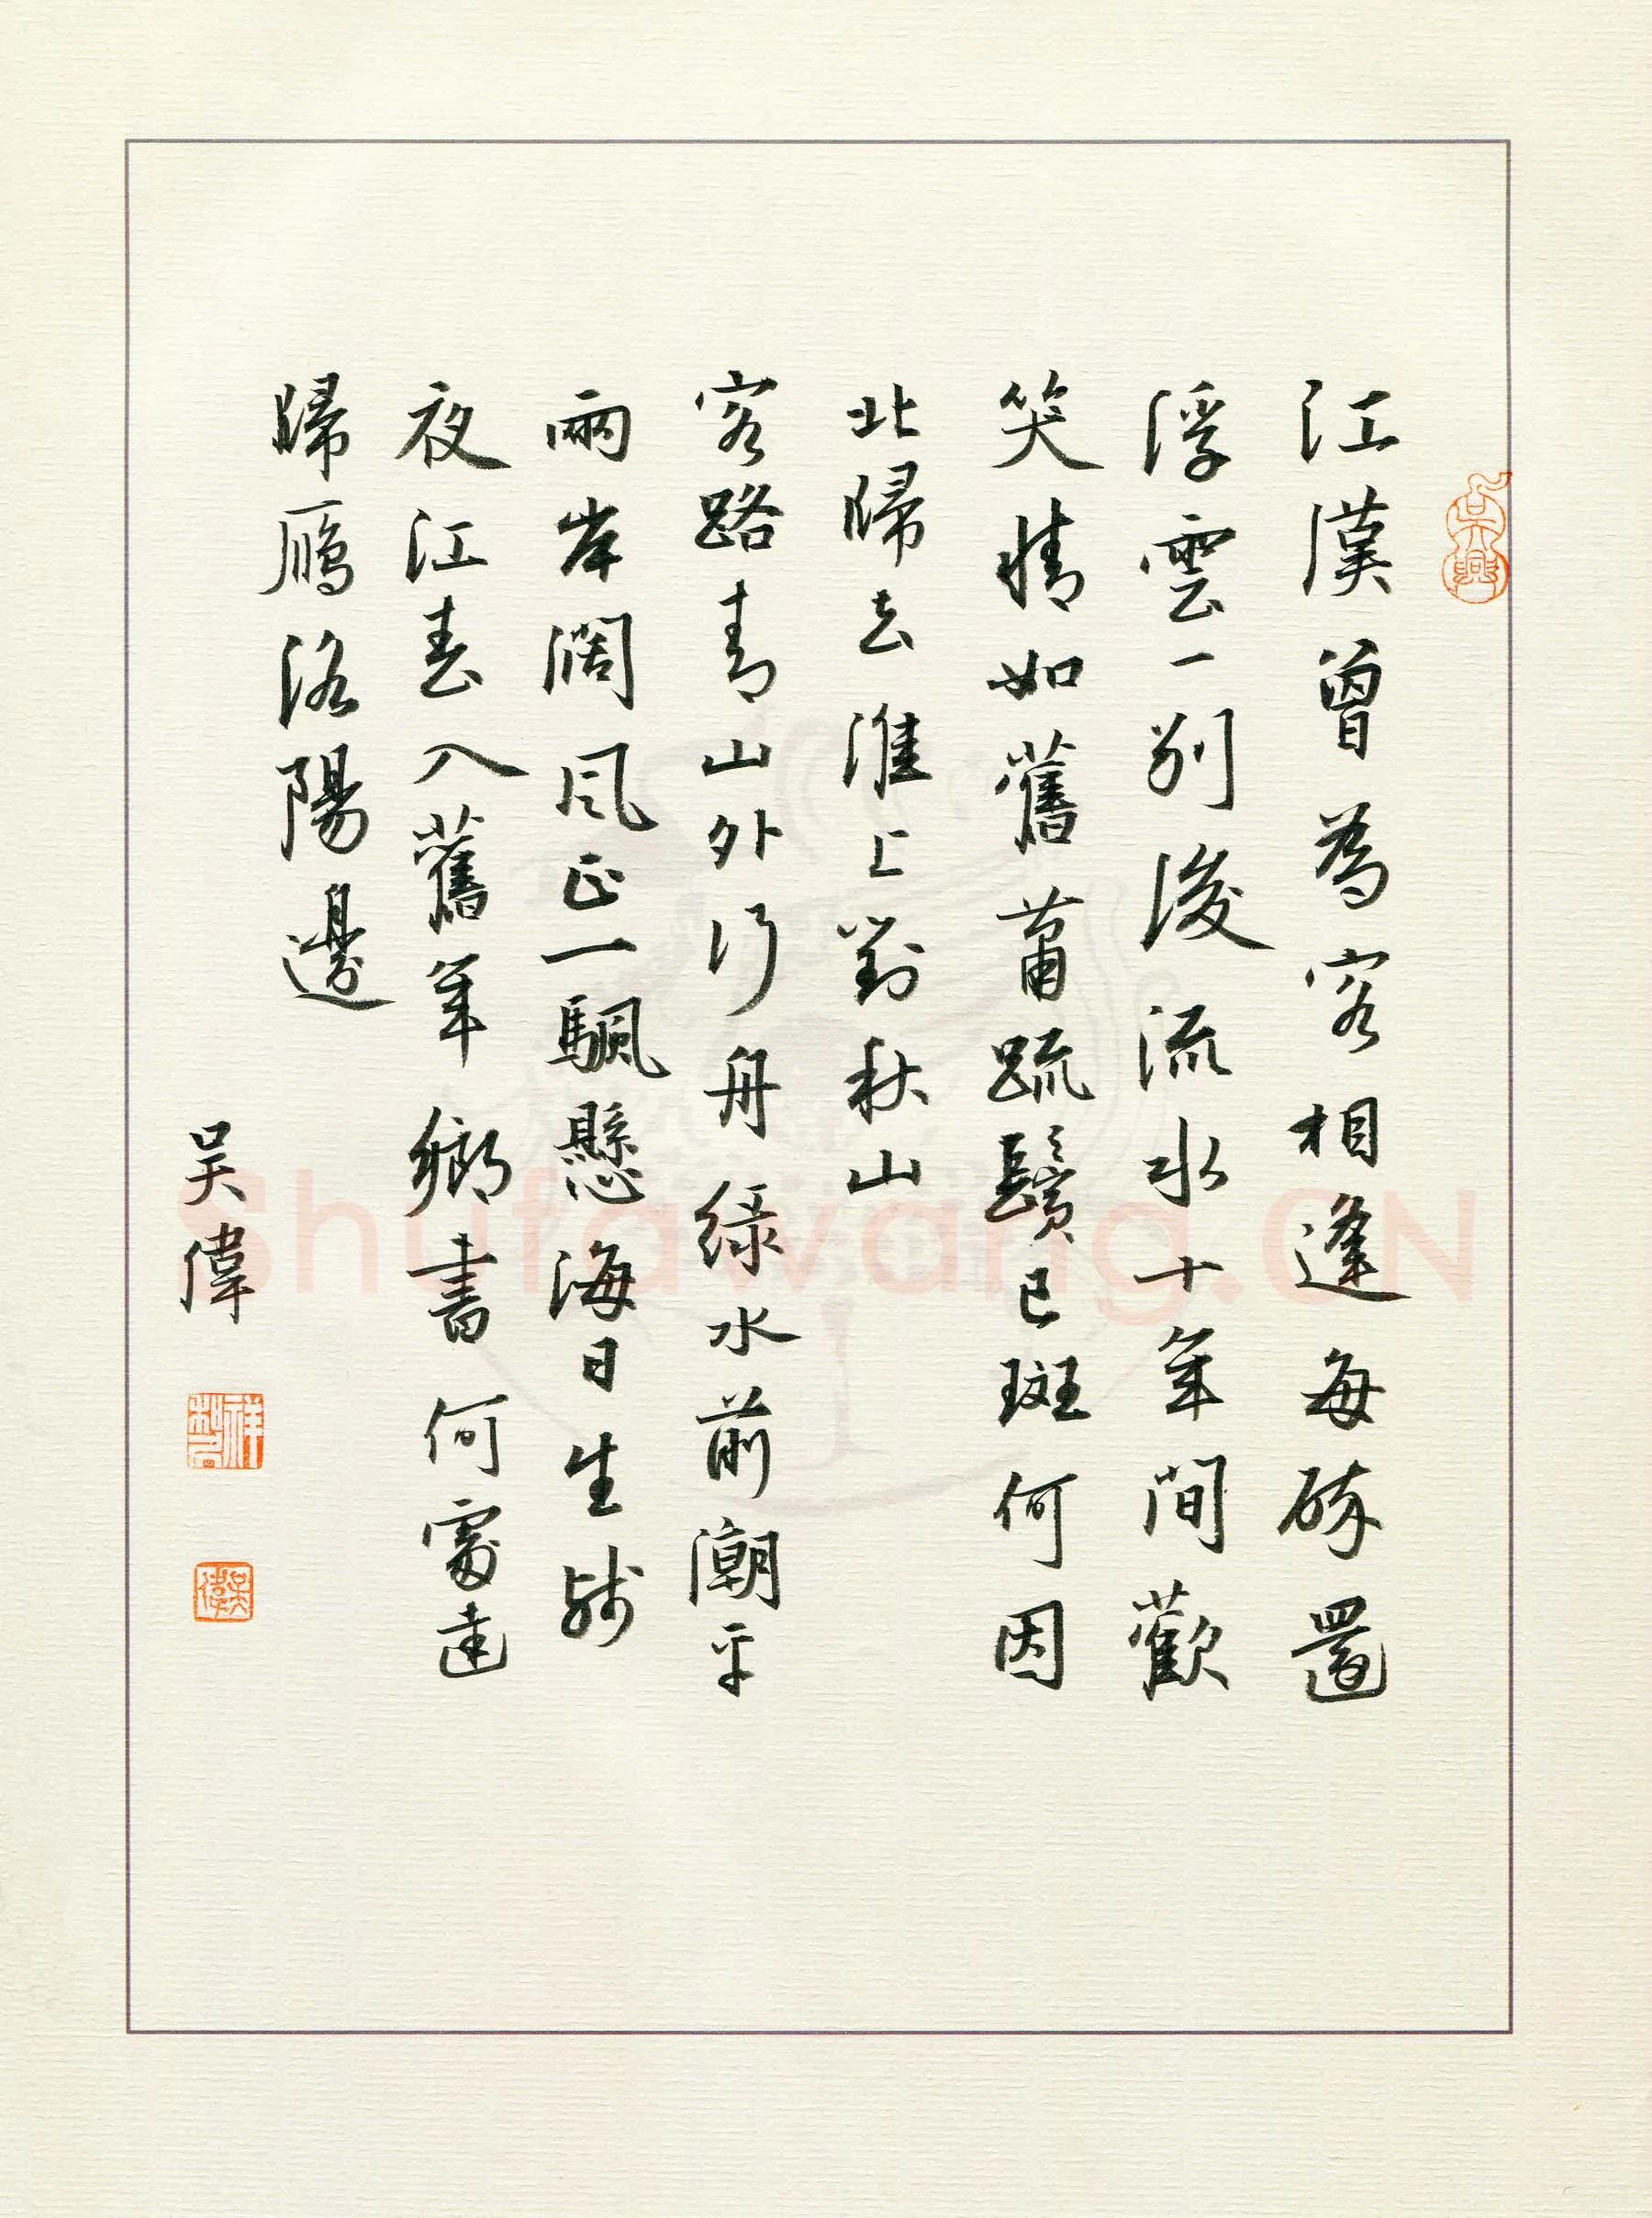 江漢曾為客相逢每醉還
浮雲一別後流水十年間歡
笑情如舊蕭疏鬢已斑何因
北歸去淮上對秋山
客路青山外行舟綠水前潮平
兩岸闊風正一颿懸海日生殘
夜江春入舊年鄉書何處達
歸鴈洛陽邊
吴偉
吳興
吳偉
Shufawang.CN